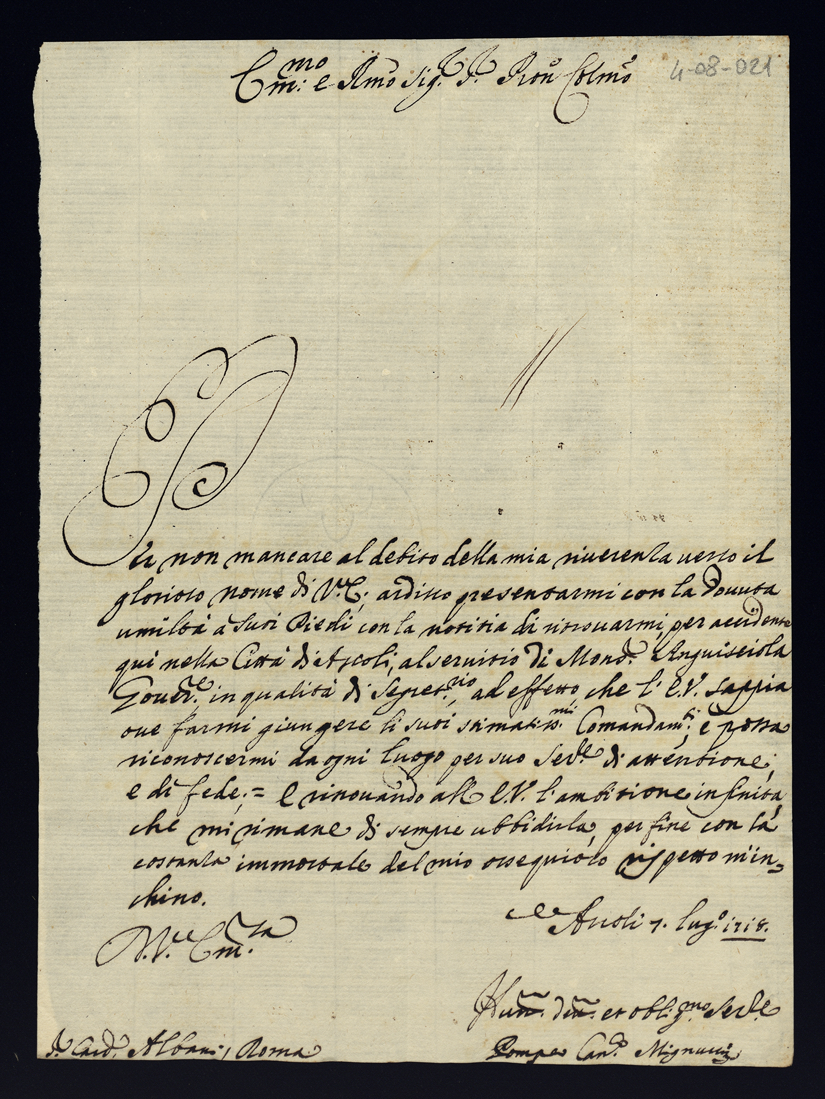 Em.mo e Rmo Sig.r P.r Pron Colmo
4-08-021
Per non mancare al debito della mia riverenza verso il
glorioso nome di V.E; ardisco presentarmi con la dovuta
umiltà a Suoi Piedi con la notitia di ritrovarmi, per accidente
qui nella Città di Ascoli, al servitio di Mons.r Anguisciola
Gover.re, in qualità di Segret.rio, ad effetto che l'E.V. sappia
ove farmi giungere li suoi stimatis.mi Comandam.ti; e possa
riconoscermi da ogni luogo per suo Ser.re di attentione,
e di fede; = E rinovando all' E.V. l'ambitione infinita,
che mi rimane di sempre ubbidirla, per fine con la
costanza immortale del mio ossequioso rispetto m'in=
chino.
D.V. Em.za
Ascoli 7. lug.o 1718.
Hum. din. et obl.gmo Ser.re
Pompeo Can.co Mignucci
S.r Card. Albani, Roma